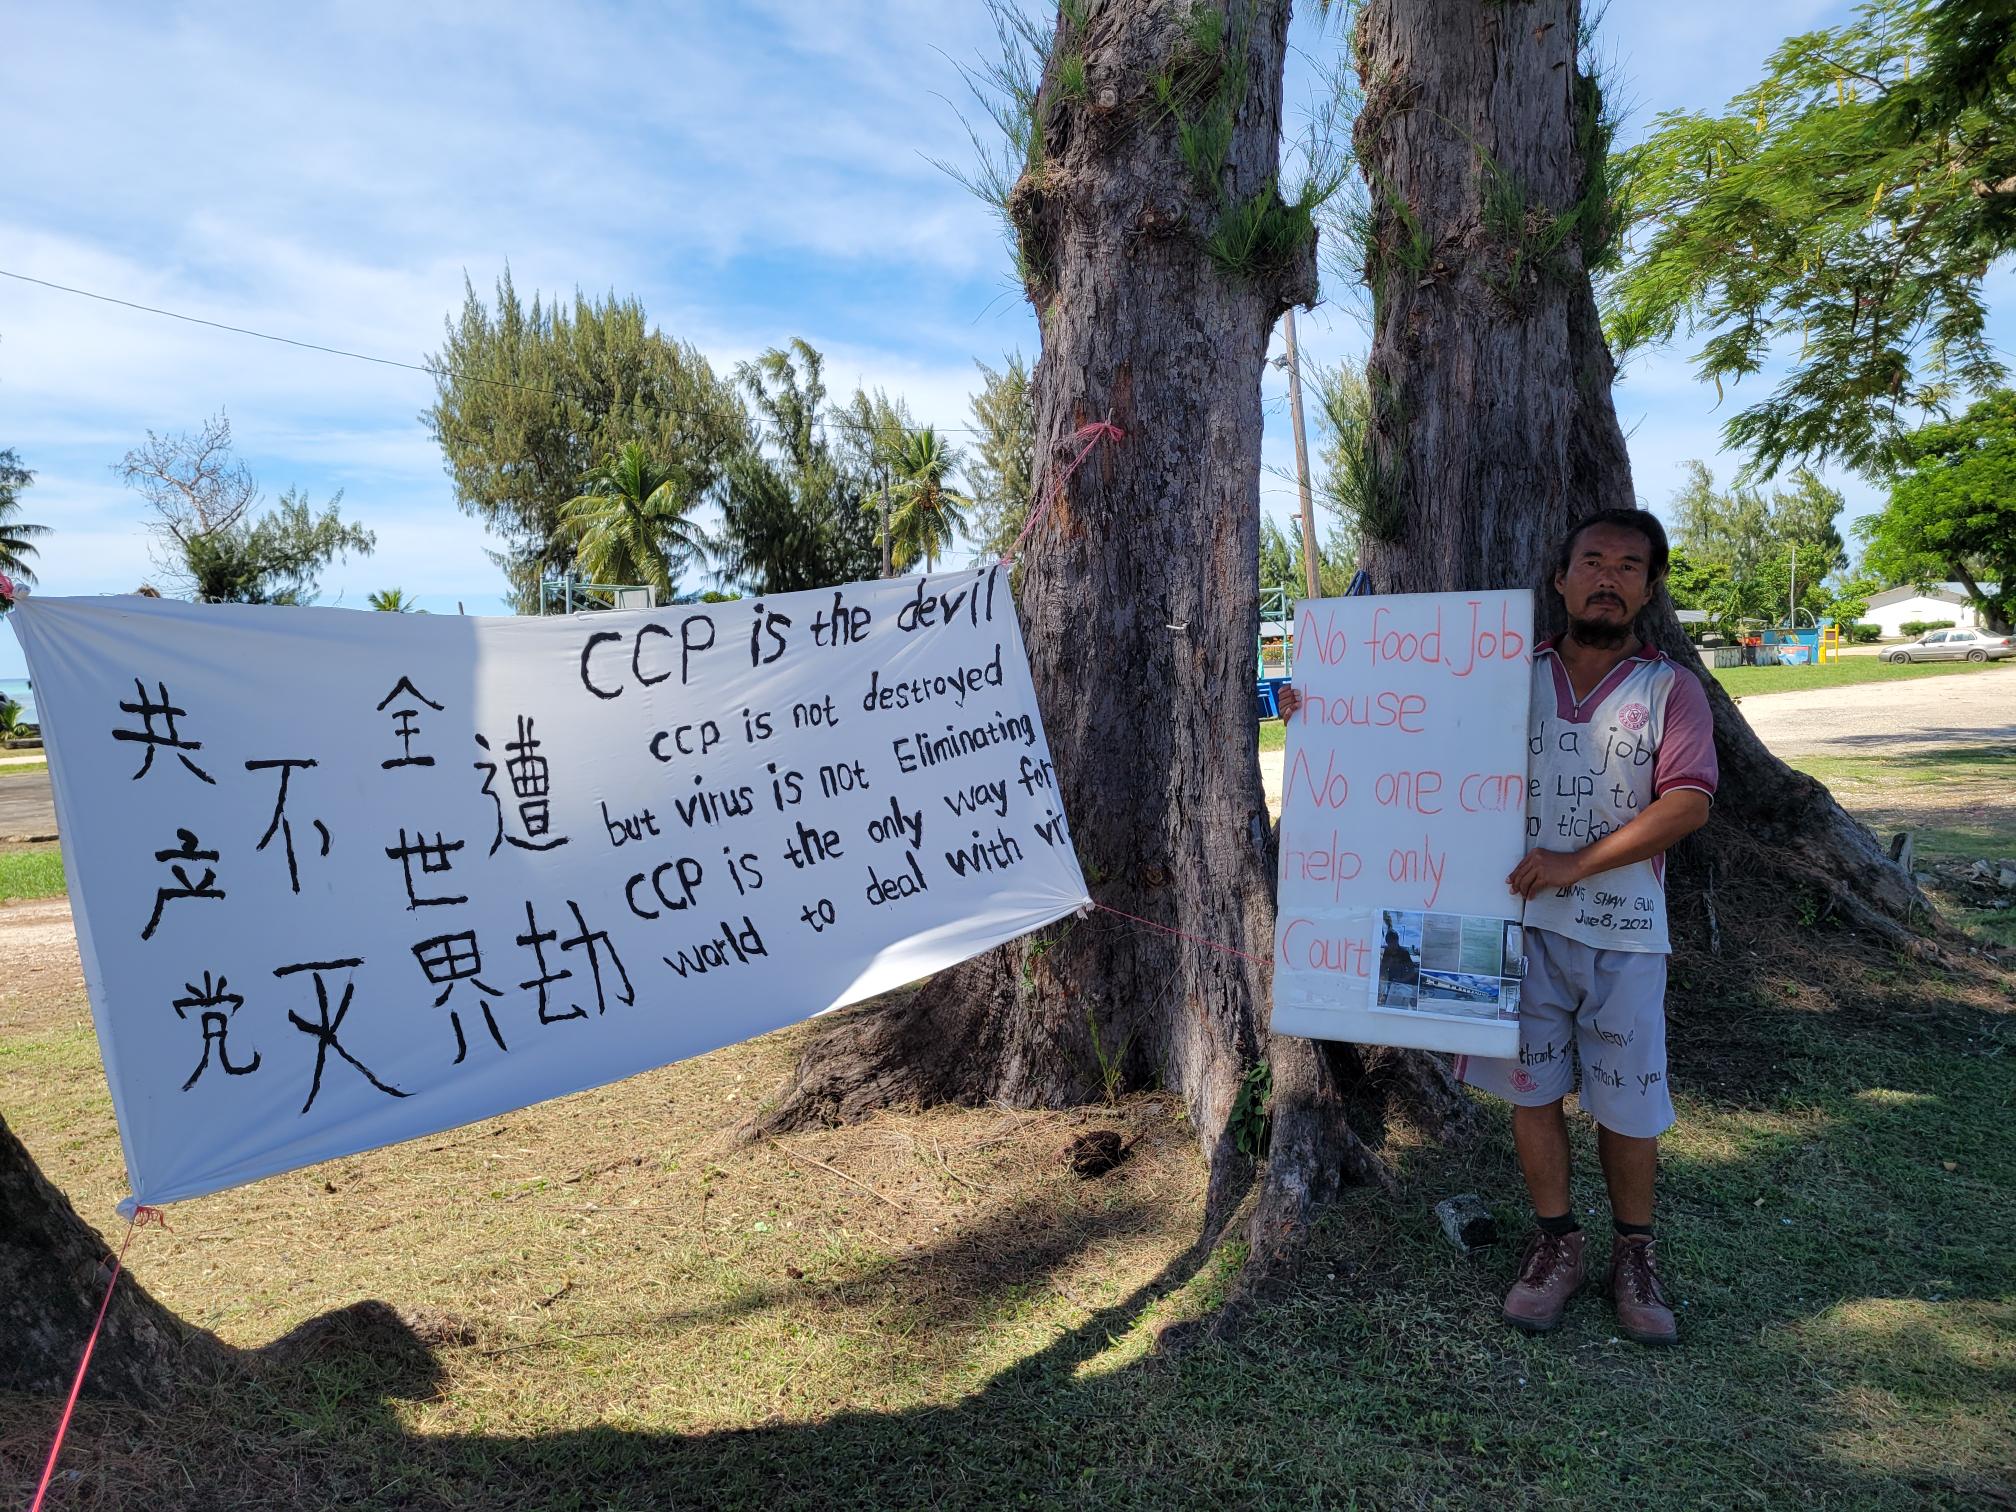 共产党
不灭
全世界
遭劫
CCP is the devil
CCP is not destroyed
but virus is not Eliminating
CCP is the only way for
world to deal with
No food、Job、
house
No one can
help only
Court
a job
up to
SHAN GUO
June 8, 2021
leave
thank you
thank